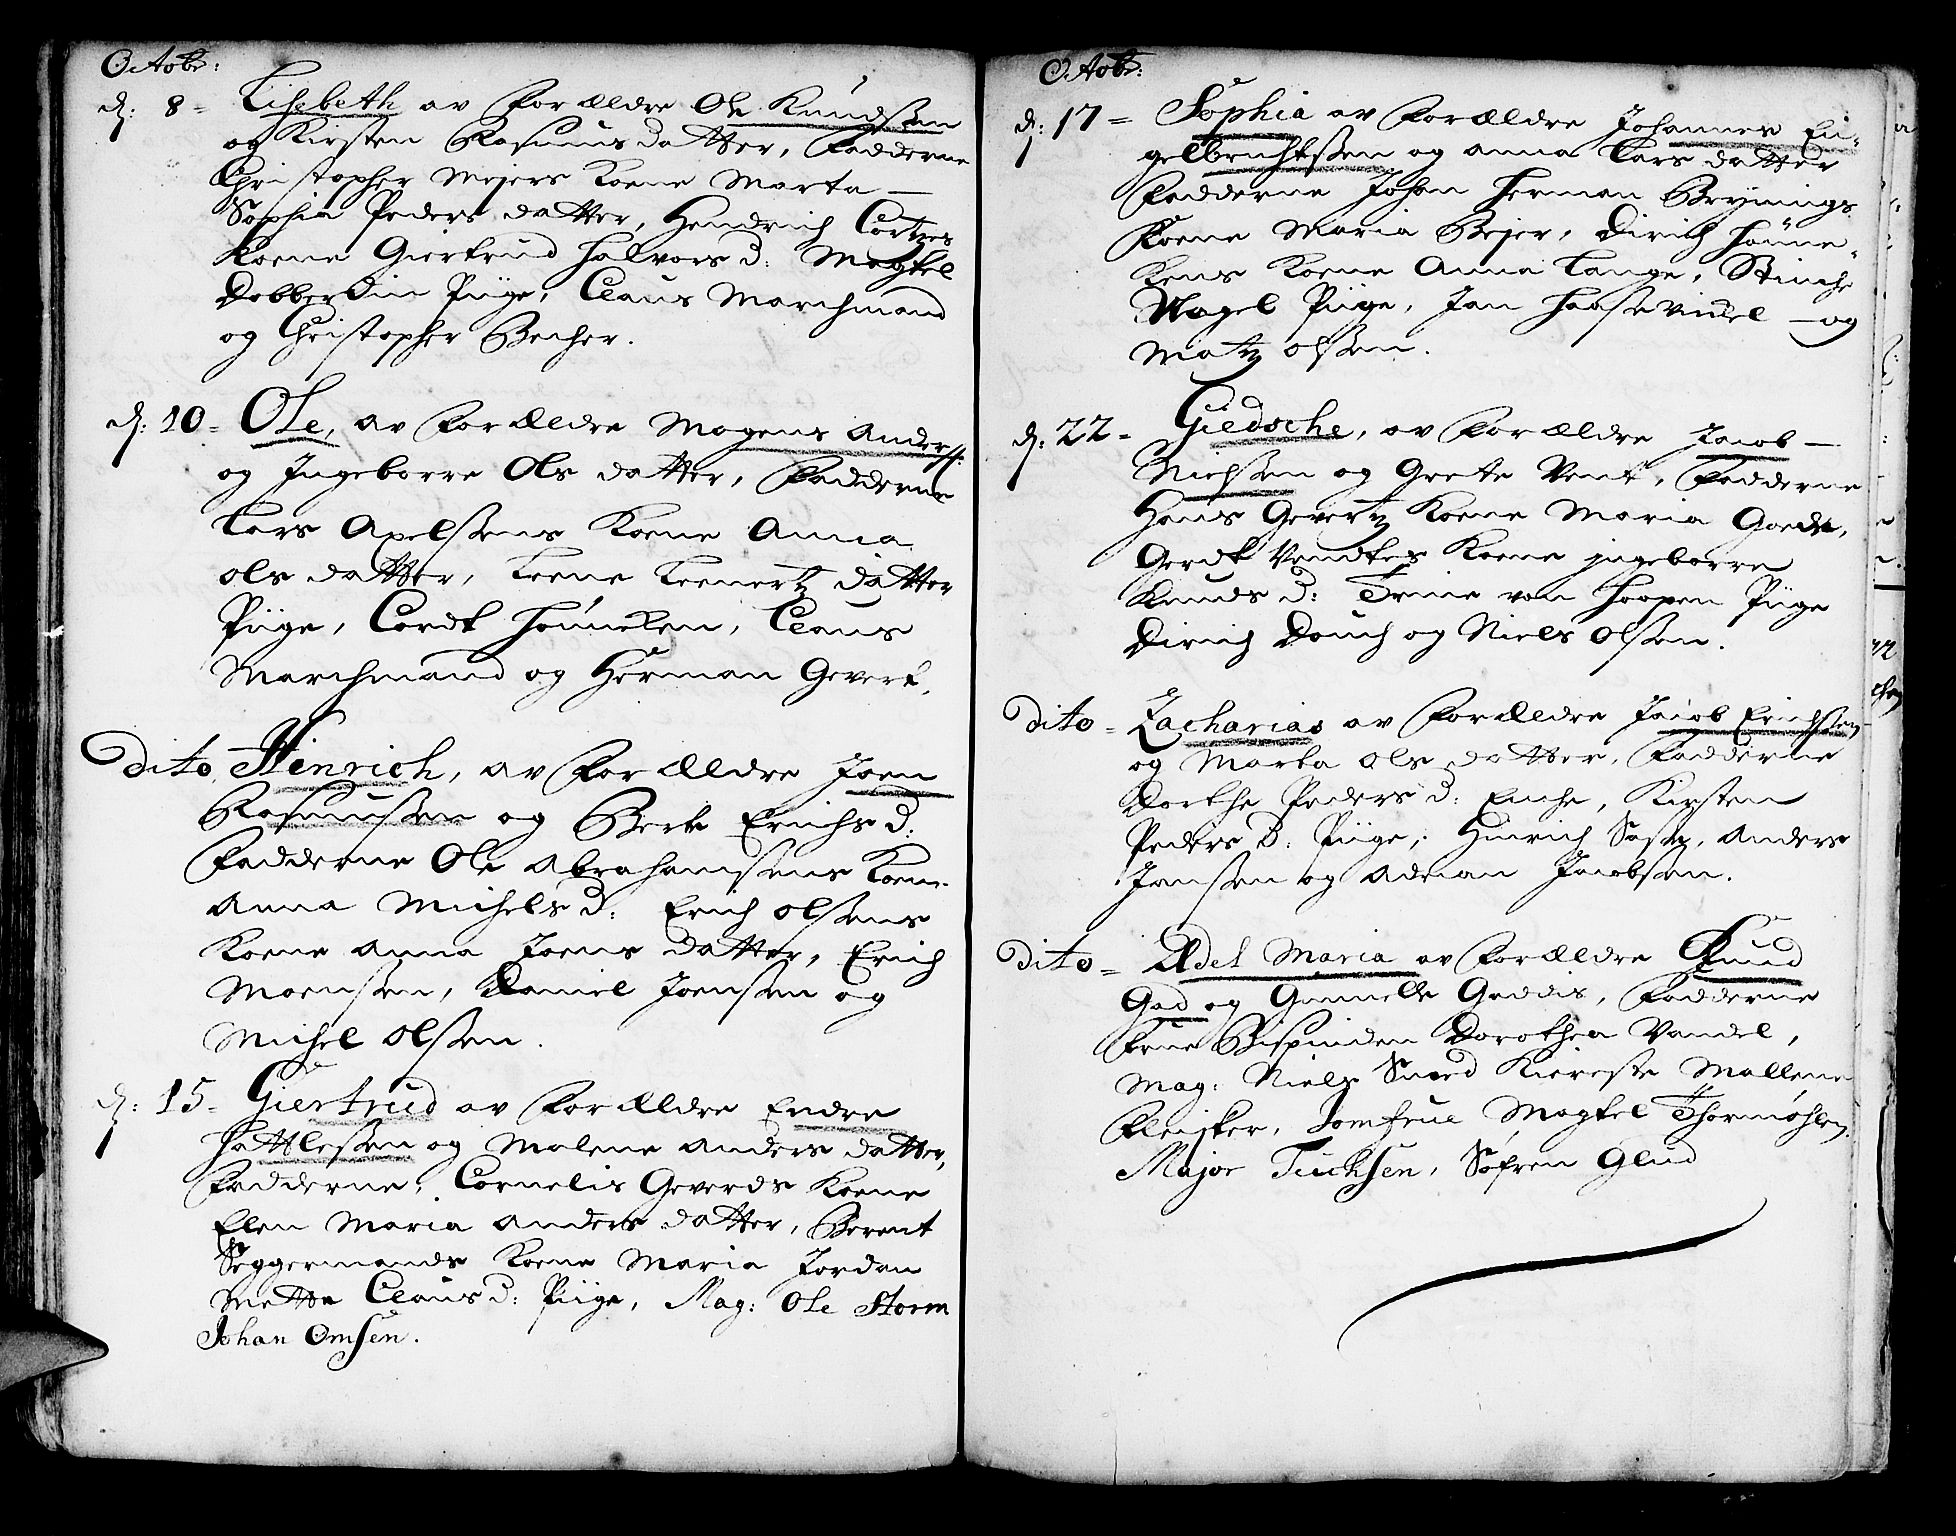 Octobr:
d: 8 = Lisebeth av Forældre Ole Knudsen
og Kirsten Rasmus datter, Fadderne
Christopher Mejers Kone Marta —
Sophia Peders datter, Hendrich Cortzes
Kone Giertrud Halvors d: Magtel
Dobberdin Piige, Claus Marchmand
og Christopher Becher.
d: 10 = Ole, av Forældre Mogens Anders:
og Ingeborre Ols datter, Fadderne
Lars Axelsens Kone Anna
Ols datter, Leene Leenertz datter
Piige, Cordt Hönneken, Claus
Marchmand og Herman Gevert.
Dito Hinrich, av Forældre Joen
Rasmussen og Berte Erichs d:
Fadderne Ole Abrahamsens Kone
Anna Michels d: Erich Olsens
Kone Anna Joens datter, Erich
Moensen, Daniel Joensen og
Michel Olsen.
d: 15 = Giertrud av Forældre Endre
Hattlesen og Malene Anders datter,
Fadderne, Cornelis Geverds Kone
Elen Maria Anders datter, Berent
Seggermands Kone Maria Jordan
Mette Claus d: Piige, Mag: Ole Storm
Johan Omsen.
Octobr:
d: 17 = Sophia av Forældre Johannes En-
gelbrechtsen og Anna Lars datter
Fadderne Johan Herman Brynings
Kone Maria Bejer, Dirich Hönne-
kens Kone Anna Lange, Stinche
Nagel Piige, Jan Haasewinckel — og
Matz Olsen.
d: 22 = Giedsche, av Forældre Jacob —
Nielsen og Grete Vent, Fadderne
Hans Gevertz Kone Maria Goede,
Gerdt Vendtes Kone Ingeborre
Knuds d: Trine von Hoopen Piige
Dirich Douch og Niels Olsen.
Dito = Zacharias av Forældre Jacob Erichsen
og Marta Ols datter, Fadderne
Dorthe Peders d: Enche, Kirsten
Peders d: Piige, Hinrich Sost, Anders
Jansen og Adrian Jacobsen.
Dito = Adel Maria av Forældre Knud
Gad og Gunnelle Gaddis, Fadderne
Frue Bispinden Dorothea Vandel,
Mag: Niels Smed Kiereste Mallene
Fleisker, Jomfrue Magtel Thormøhlen.
Major Tuchsen, Søfren Glud